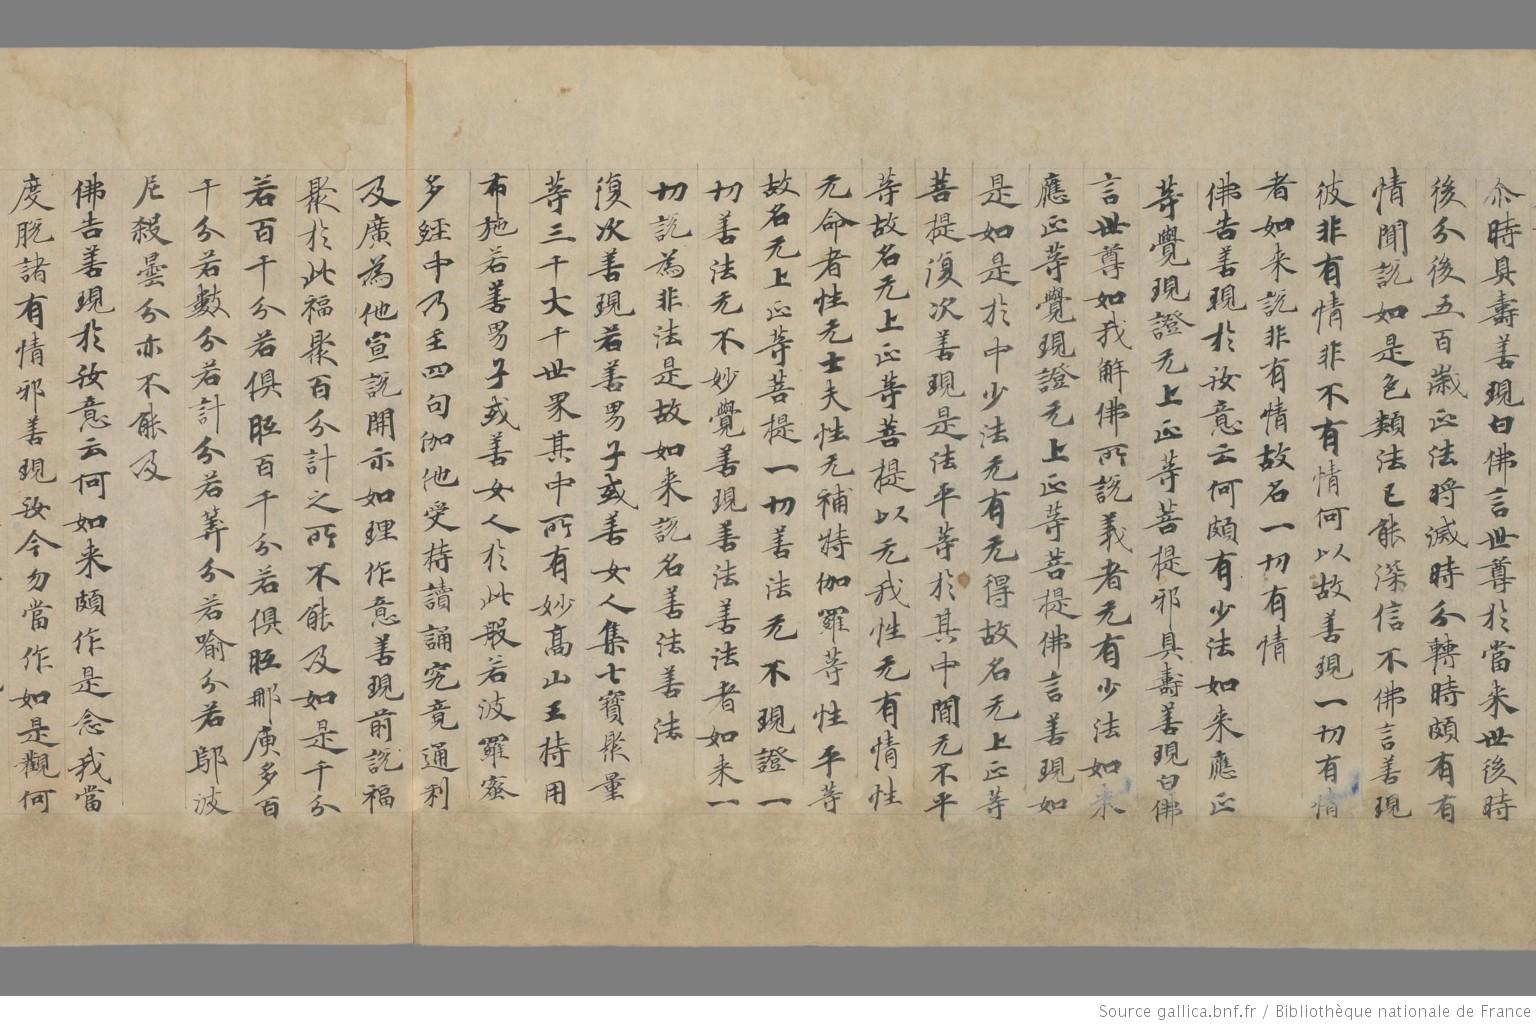 尒時具壽善現白佛言世尊於當来世後時
後分後五百歲正法將滅時分轉時頗有有
情聞說如是色類法已能深信不佛言善現
彼非有情非不有情何以故善現一切有情
者如来說非有情故名一切有情
佛告善現於汝意云何頗有少法如来應正
等覺現證无上正等菩提邪具壽善現白佛
言世尊如我解佛所說義者无有少法如来
應正等覺現證无上正等菩提佛言善現如
是如是於中少法无有无得故名无上正等
菩提復次善現是法平等於其中間无不平
等故名无上正等菩提以无我性无有情性
无命者性无士夫性无補特伽羅等性平等
故名无上正等菩提一切善法无不現證一
切善法无不妙覺善現善法善法者如来一
切說為非法是故如来說名善法善法
復次善現若善男子或善女人集七寶聚量
等三千大千世界其中所有妙高山王持用
布施若善男子或善女人於此般若波羅蜜
多經中乃至四句伽他受持讀誦究竟通利
及廣為他宣說開示如理作意善現前說福
聚於此福聚百分計之所不能及如是千分
若百千分若俱胝百千分若俱胝那庾多百
千分若數分若計分若筭分若喻分若鄔波
尼煞曇分亦不能及
佛告善現於汝意云何如来頗作是念我當
度脫諸有情邪善現汝今勿當作如是觀何
Source gallica.bnf.fr / Bibliothèque nationale de France